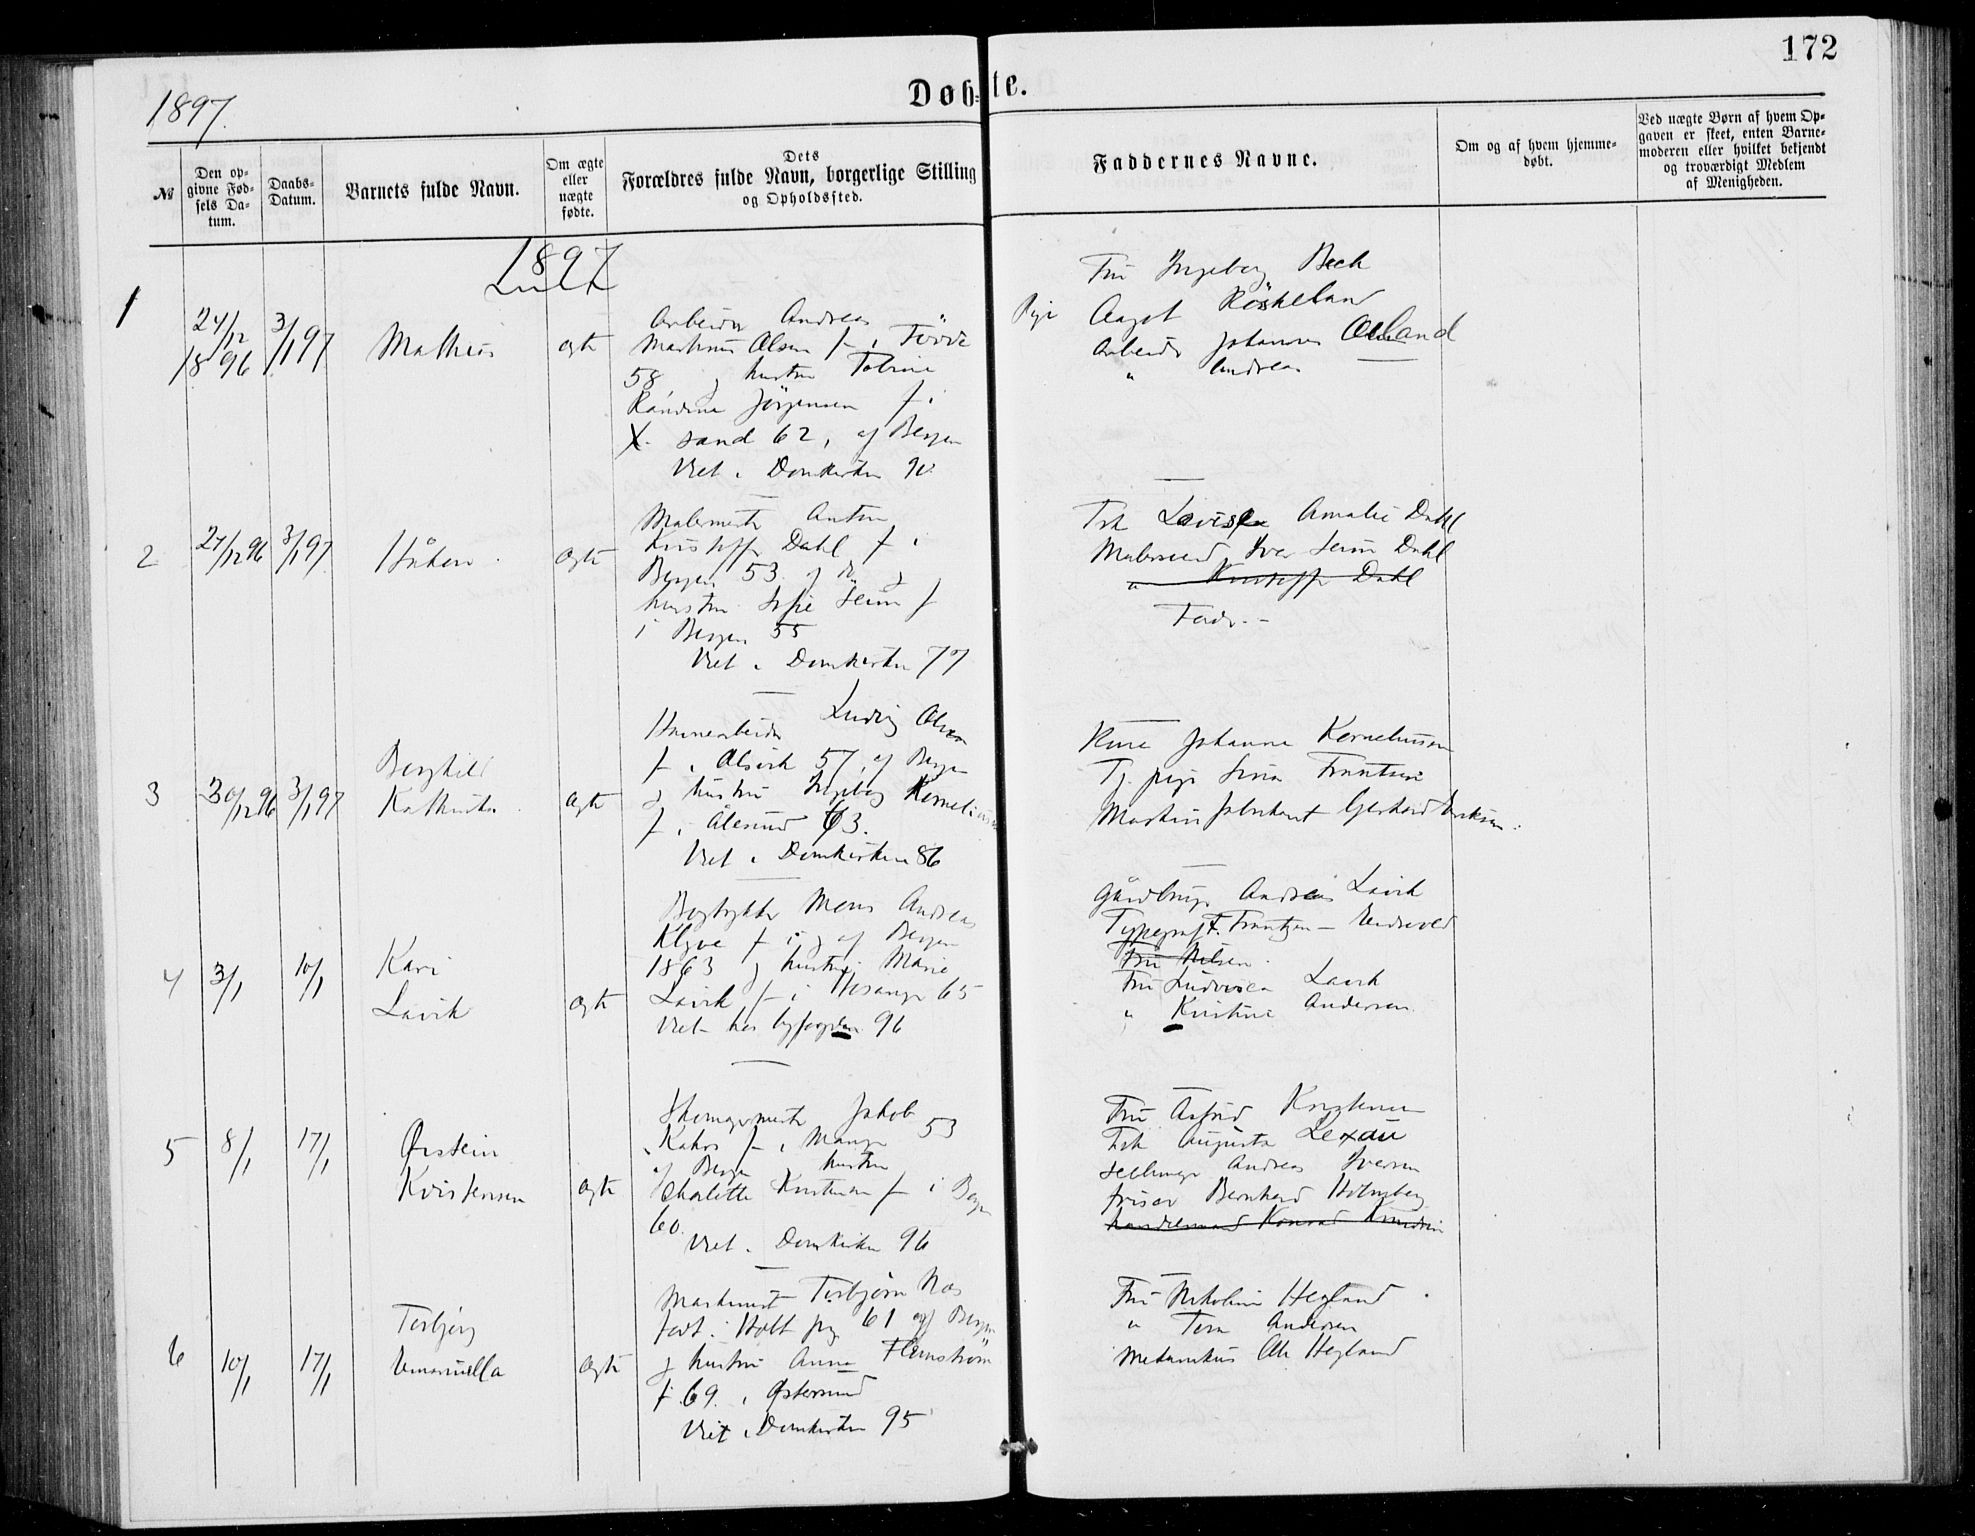 172
1897.
Døbte.
№
Den opgivne Fødsels Datum.
Daabs-Datum.
Barnets fulde Navn.
Om ægte eller uægte fødte.
Dets Forældres fulde Navn, borgerlige Stilling og Opholdssted.
Faddernes Navne.
Om og af hvem hjemmedøbt.
Ved uægte Børn af hvem Opgaven er skeet, enten Barnemoderen eller hvilket bekjendt og troværdigt Medlem af Menigheden.
1897
1
24/12 1896
3/1 97
Mathias
ægte
Arbeider Andreas
Martinus Olsen f. i Förde
58 og hustru Toline
Jörgensen f. i
X.sand 62, af Bergen
Viet i Domkirken
Fru Ingeborg Beck
Pige Aagot Röskeland
Arbeider Johannes
" Andreas
2
27/12 96
3/1 97
Håkon
ægte
Malermester Anton
Kristoffer Dahl f. i
Bergen 53 af do og
hustru Sofie Seim f
i Bergen 55
Viet i Domkirken 77
Frk Lovise Amalie Dahl
Malersvend Iver Seim Dahl
" Kristoffer Dahl
Fader
3
30/12 96
3/1 97
Borghild
Kathinka
ægte
Ludvig Olsen
f. i Alsvik 57, af Bergen
og hustru Ingeborg Korneliussen
f. i Ålesund 63.
Viet i Domkirken 86
Kone Johanna Korneliussen
Tj. pige
Martin Gerhard Eriksen
4
3/1
10/1
Kari
Lavik
ægte
Bogtrykker Mons Andreas
Klyve f i og af Bergen
1863 og hustru Marie
Lavik f. i Hosanger 65
Viet hos byfogden 96
Gårdbruger Andreas Lavik
Typograf F. Frantzen
Fru Nilsen
Fru Ludovica Lavik
" Kristine Andersen
5
8/1
17/1
Øistein
Kristensen
ægte
Skomagermester Jakob
f. i Manger 53
af Bergen og hustru
Charlotte Kristensen f. i Bergen
60.
Viet i Domkirken 96
Fru Astrid Kristensen
Frk Augusta Lexau
Andreas Iversen
frisør Bernhard Holmberg
handelsmand Konrad Knudsen
6
10/1
17/1
Torbjørg
Emanuella
ægte
Maskinist Torbjørn Næs
født i Holt prg 61 af Bergen
og hustru Anna Flemström
f. 69 i Østersund
Viet i Domkirken 95
Fru Nikoline Hegland
" Tora Andersen
Mekanikus Ole Hegland